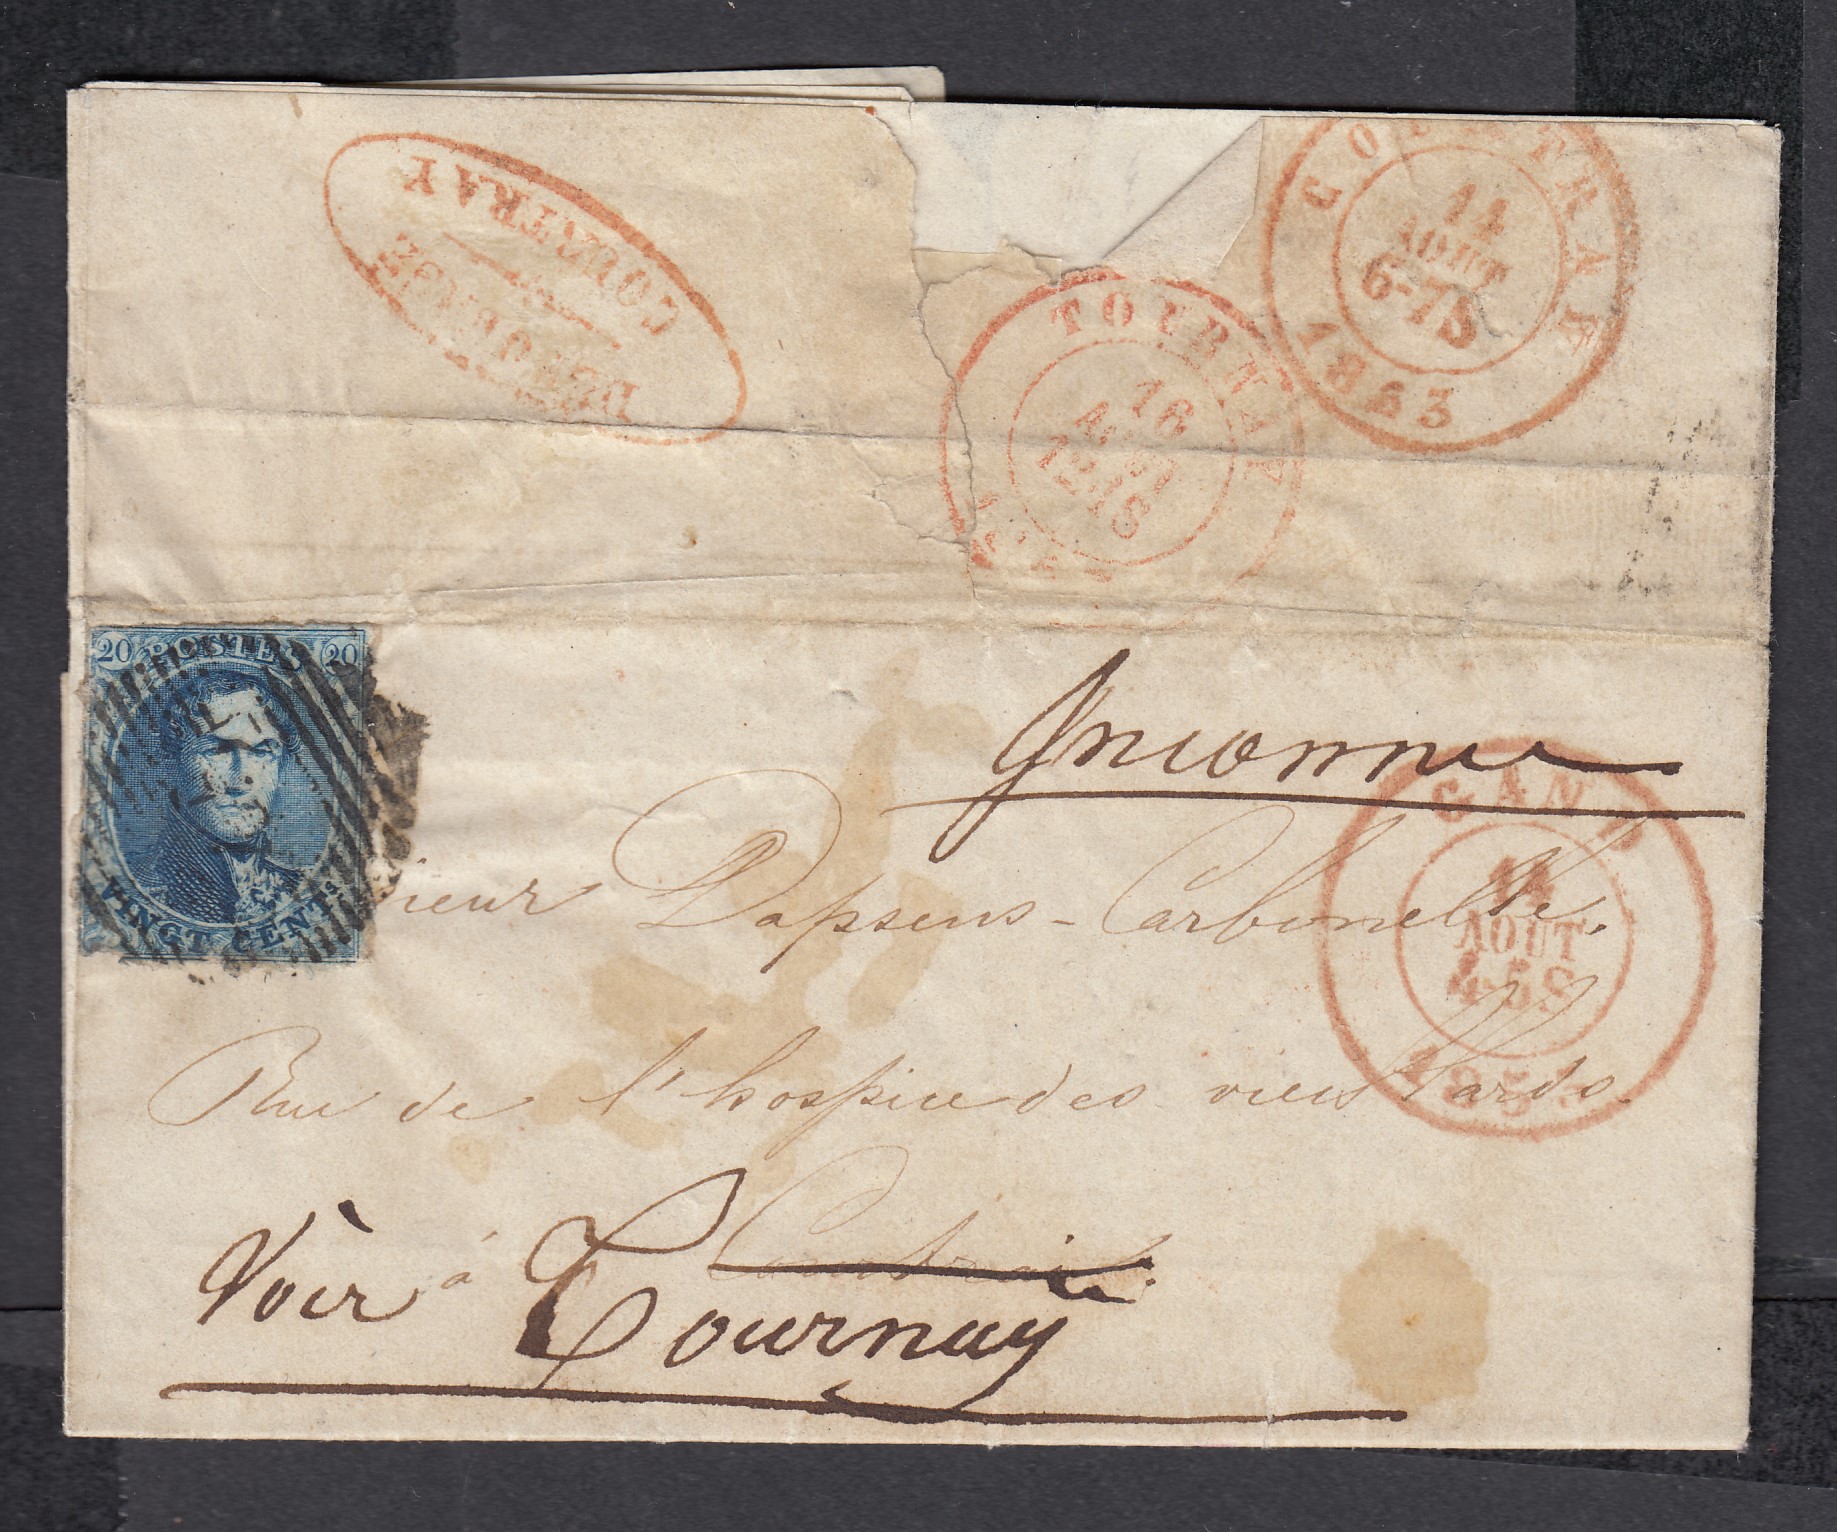 COURTRAY
COURTRAY
14
AOUT
6-7S
1853
TOURNAY
16
12-1S
20 POSTES 20
VINGT CENTS
Inconnu
GAND
14
AOUT
4-5S
185
sieur Dapsens-Carbonelle.
Rue de l'hospice des vieillards.
à Courtrai.
Voir Tournay